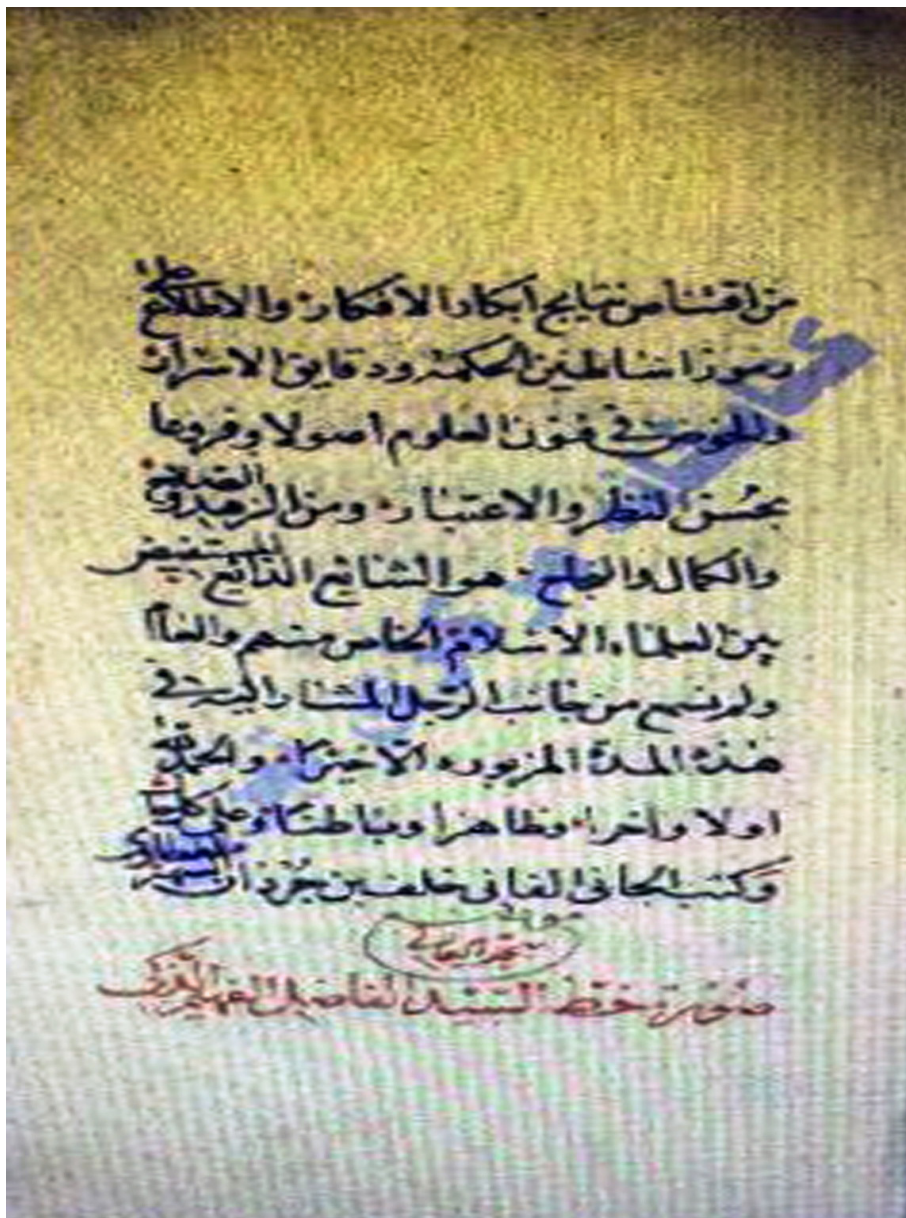 من اقتناص نتايج أبكار الأفكار والاطلاع على
رموز اساطين الحكمة ودقايق الاسرار
والخوض في فنون العلوم أصولا وفروعا
بحُسن النظر والاعتبار ومن الزهد والصلاح
والكمال والفلاح هو الشائع الذائع المستفيض
بين العلماء الاسلام الخاص منهم والعام
ولم نسمع من جانب الرجل المشار اليه في
هذه المدة المزبوره الا خيرا والحمد لله
اولا وآخرا وظاهرا وباطنا وعلى كل حال
وكتب الجاني الفاني خلف بن
صورة خط السيد الفاضل الفهيم الذكي